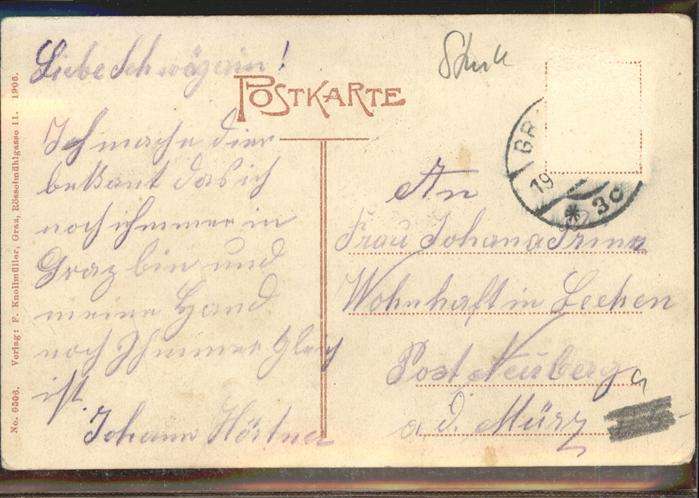 Liebe Schwägerin!
Stmk
POSTKARTE
Ich mache dier
bekant das ich
noch ihmmer in
Graz bin und
meine Hand
noch Ihmmer Gleich
ist.
Johann Hörtner
GR
19
3c
An
Frau Johana
Wohnhaft in Lechen
Post Neuberg
a. d. Mürz
No. 6503. Verlag: F. Knollmüller, Graz, Rösselmühlgasse 11. 1906.